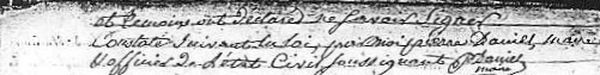 et temoins ont déclaré ne savoir Signer
Constaté Suivant la loi, par moi pierre Daniel, maire
d'officier de l'état Civil soussignant PDaniel
maire